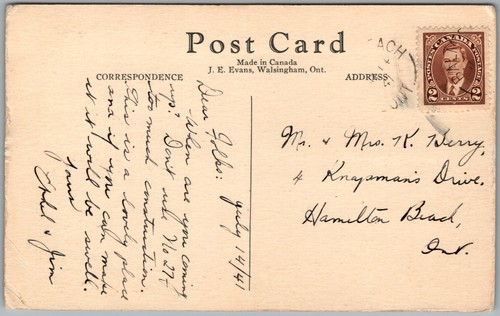 Post Card
Made in Canada
J. E. Evans, Walsingham, Ont.
CORRESPONDENCE
ADDRESS
POSTES CANADA POSTAGE
2 CENTS 2
EACH
ONT
July 14/41
Dear Folks:
When are you coming
up? Don't use No 27 -
too much construction.
This is a lovely place
and if you can make
it it will be swell.
Yours
Ethel & Jim
Mr. & Mrs. K. Berry,
4 Knapman's Drive,
Hamilton Beach,
Ont.